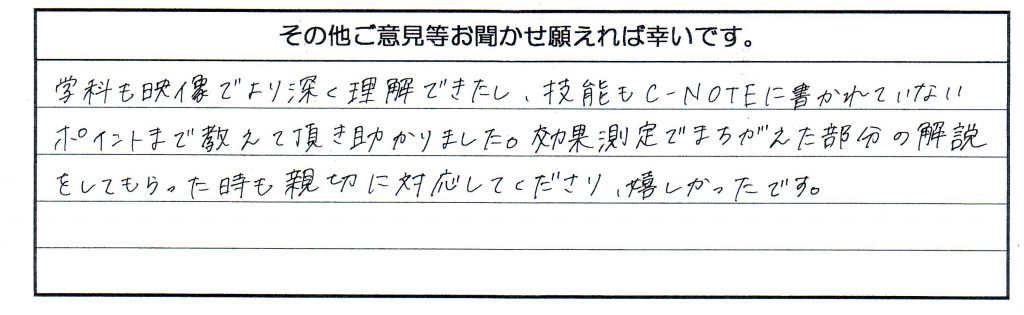 その他ご意見等お聞かせ願えれば幸いです。
学科も映像でより深く理解できたし、技能もC-NOTEに書かれていない
ポイントまで教えて頂き助かりました。効果測定でまちがえた部分の解説
をしてもらった時も親切に対応してくださり、嬉しかったです。